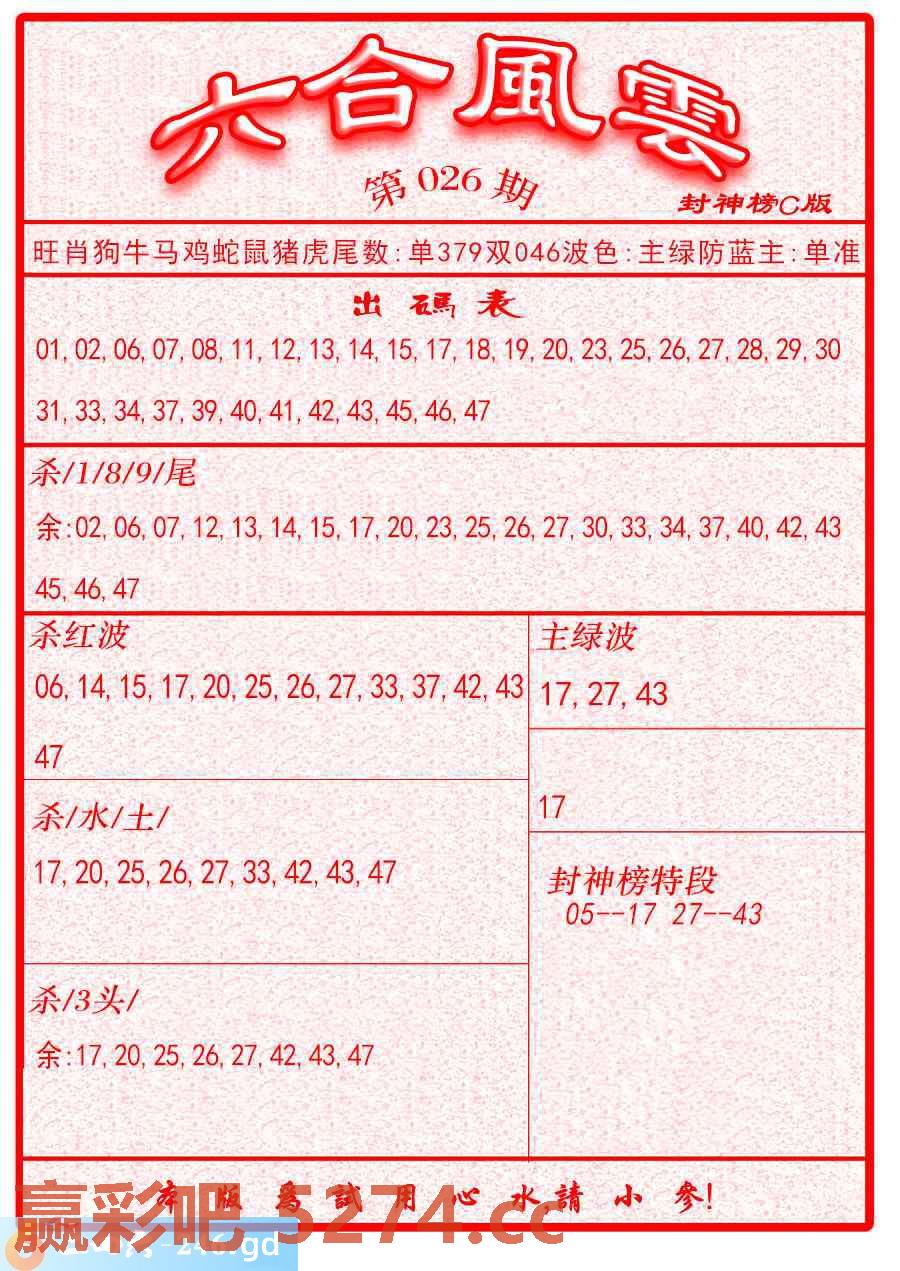 六合風雲
第026期
封神榜C版
旺肖狗牛马鸡蛇鼠猪虎尾数:单379双046波色:主绿防蓝主:单准
出碼表
01,02,06,07,08,11,12,13,14,15,17,18,19,20,23,25,26,27,28,29,30
31,33,34,37,39,40,41,42,43,45,46,47
杀/1/8/9/尾
余:02,06,07,12,13,14,15,17,20,23,25,26,27,30,33,34,37,40,42,43
45,46,47
杀红波
06,14,15,17,20,25,26,27,33,37,42,43
47
主绿波
17,27,43
17
杀/水/土/
17,20,25,26,27,33,42,43,47
封神榜特段
05--17 27--43
杀/3头/
余:17,20,25,26,27,42,43,47
本版爲試用心水請小參!
赢彩吧 5274.cc
-246.gd